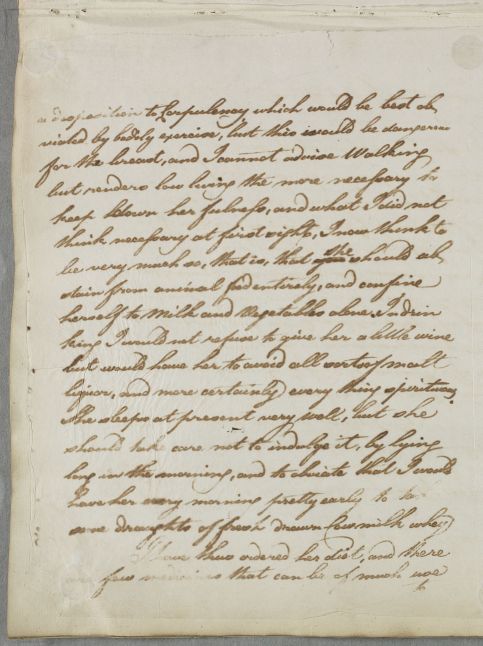 a disposition to Corpulency which would be best ob
viated by bodily exercise, but this would be dangerous
for the breast, and I cannot advise Walking
but renders low living the more necessary to
keep down her fulness, and what I did not
think necessary at first sight, I now think to
be very much so, that is, that she should ab
stain from animal food entirely, and confine
herself to Milk and Vegetables alone. In drin
king I would not refuse to give her a little wine
but would have her to avoid all sorts of malt
liquor, and more certainly every thing spirituous
She sleeps at present very well, but she
should take care not to indulge it, by lying
long in the morning, and to obviate that I would
have her every morning pretty early to
some draughts of fresh drawn Cow milk whey
I have thus ordered her diet, and there
are few medicines that can be of much use
to